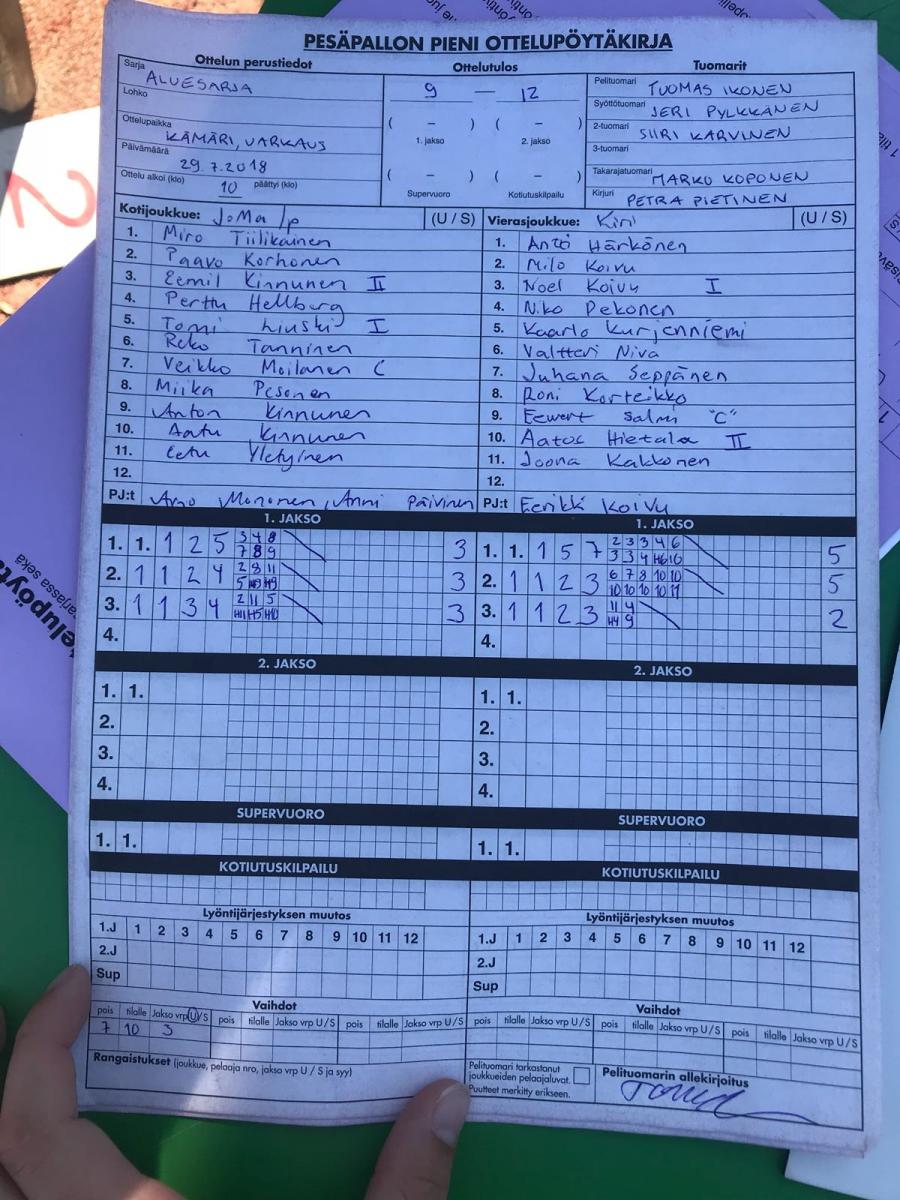 PESÄPALLON PIENI OTTELUPÖYTÄKIRJA
Ottelun perustiedot
Sarja ALUESARJA
Lohko
Ottelupaikka KÄMÄRI, VARKAUS
Päivämäärä 29.7.2018
Ottelu alkoi (klo) 10 päättyi (klo)
Ottelutulos
9 — 12
( – ) ( – )
1. jakso 2. jakso
( – ) ( – )
Supervuoro Kotiutuskilpailu
Tuomarit
Pelituomari TUOMAS IKONEN
Syöttötuomari JERI PYLKKÄNEN
2-tuomari SIIRI KARVINEN
3-tuomari
Takarajatuomari MARKO KOPONEN
Kirjuri PETRA PIETINEN
Kotijoukkue: JoMa/p (U / S)
1. Miro Tiilikainen
2. Paavo Korhonen
3. Eemil Kinnunen II
4. Perttu Hellberg
5. Tomi Liuski I
6. Reko Tanninen
7. Veikko Moilanen C
8. Miika Pesonen
9. Anton Kinnunen
10. Aatu Kinnunen
11. Eetu Yletyinen
12.
PJ:t Arno Mononen, Anni Päivinen
Vierasjoukkue: Kiri (U / S)
1. Antó Härkönen
2. Milo Koivu
3. Noel Koivu I
4. Niko Pekonen
5. Kaarlo Kurjenniemi
6. Valtteri Niva
7. Juhana Seppänen
8. Roni Korteikko
9. Eewert Salmi "C"
10. Aatos Hietala II
11. Joona Kakkonen
12.
PJ:t Eerikki Koivu
1. JAKSO
1. 1. 1 2 5 3 4 8 3
7 8 9
2. 1 1 2 4 2 8 11 3
5 H3 H9
3. 1 1 3 4 2 11 5 3
H11 H5 H10
4.
1. JAKSO
1. 1. 1 5 7 2 3 3 4 6 5
3 3 4 H6 10
2. 1 1 2 3 6 7 8 10 10 5
10 10 10 10 11
3. 1 1 2 3 11 4 2
H4 9
4.
2. JAKSO
1. 1.
2.
3.
4.
2. JAKSO
1. 1.
2.
3.
4.
SUPERVUORO
1. 1.
SUPERVUORO
1. 1.
KOTIUTUSKILPAILU
KOTIUTUSKILPAILU
Lyöntijärjestyksen muutos
1.J 1 2 3 4 5 6 7 8 9 10 11 12
2.J
Sup
Lyöntijärjestyksen muutos
1.J 1 2 3 4 5 6 7 8 9 10 11 12
2.J
Sup
Vaihdot
pois tilalle Jakso vrp U/S pois tilalle Jakso vrp U / S pois tilalle Jakso vrp U / S
7 10 3
Vaihdot
pois tilalle Jakso vrp U / S pois tilalle Jakso vrp U / S pois tilalle Jakso vrp U / S
Rangaistukset (joukkue, pelaaja nro, jakso vrp U / S ja syy)
Pelituomari tarkastanut
joukkueiden pelaajaluvat.
Puutteet merkitty erikseen.
Pelituomarin allekirjoitus